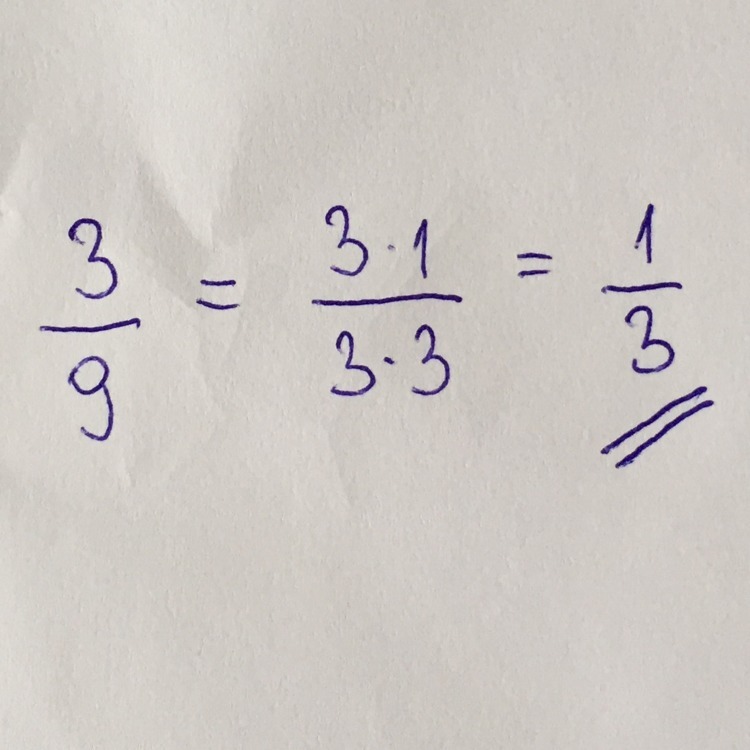 3/9 = 3·1/3·3 = 1/3